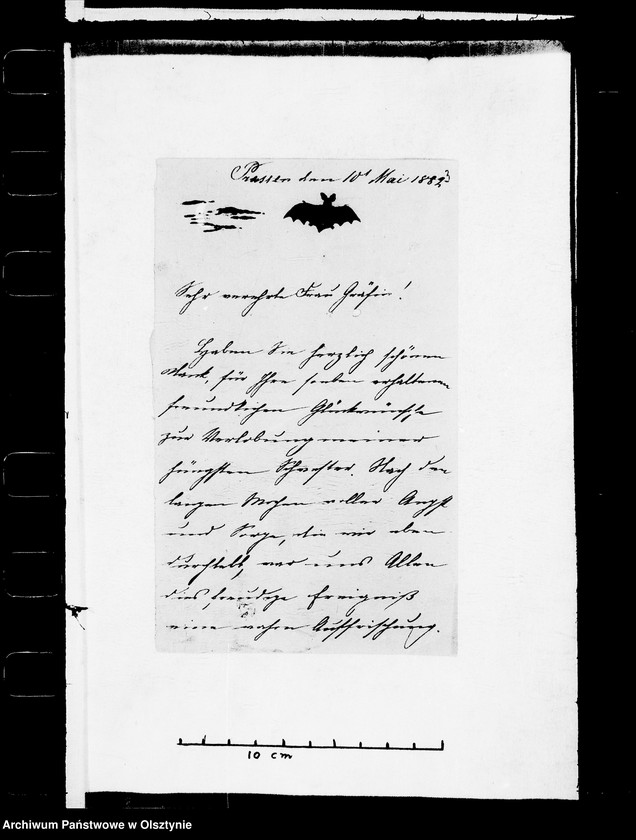 Prassen den 10t Mai 1883
Sehr verehrte Frau Gräfin!
Haben Sie herzlich schönen
Dank, für Ihre soeben erhaltenen
freundlichen Glückwünsche
zur Verlobung meiner
jüngsten Schwester. Nach den
langen Wochen voller Angst
und Sorge, die wir eben
durchlebt, war uns Allen
dies freudige Ereigniß
eine wahre Auffrischung.
10 cm
Archiwum Państwowe w Olsztynie